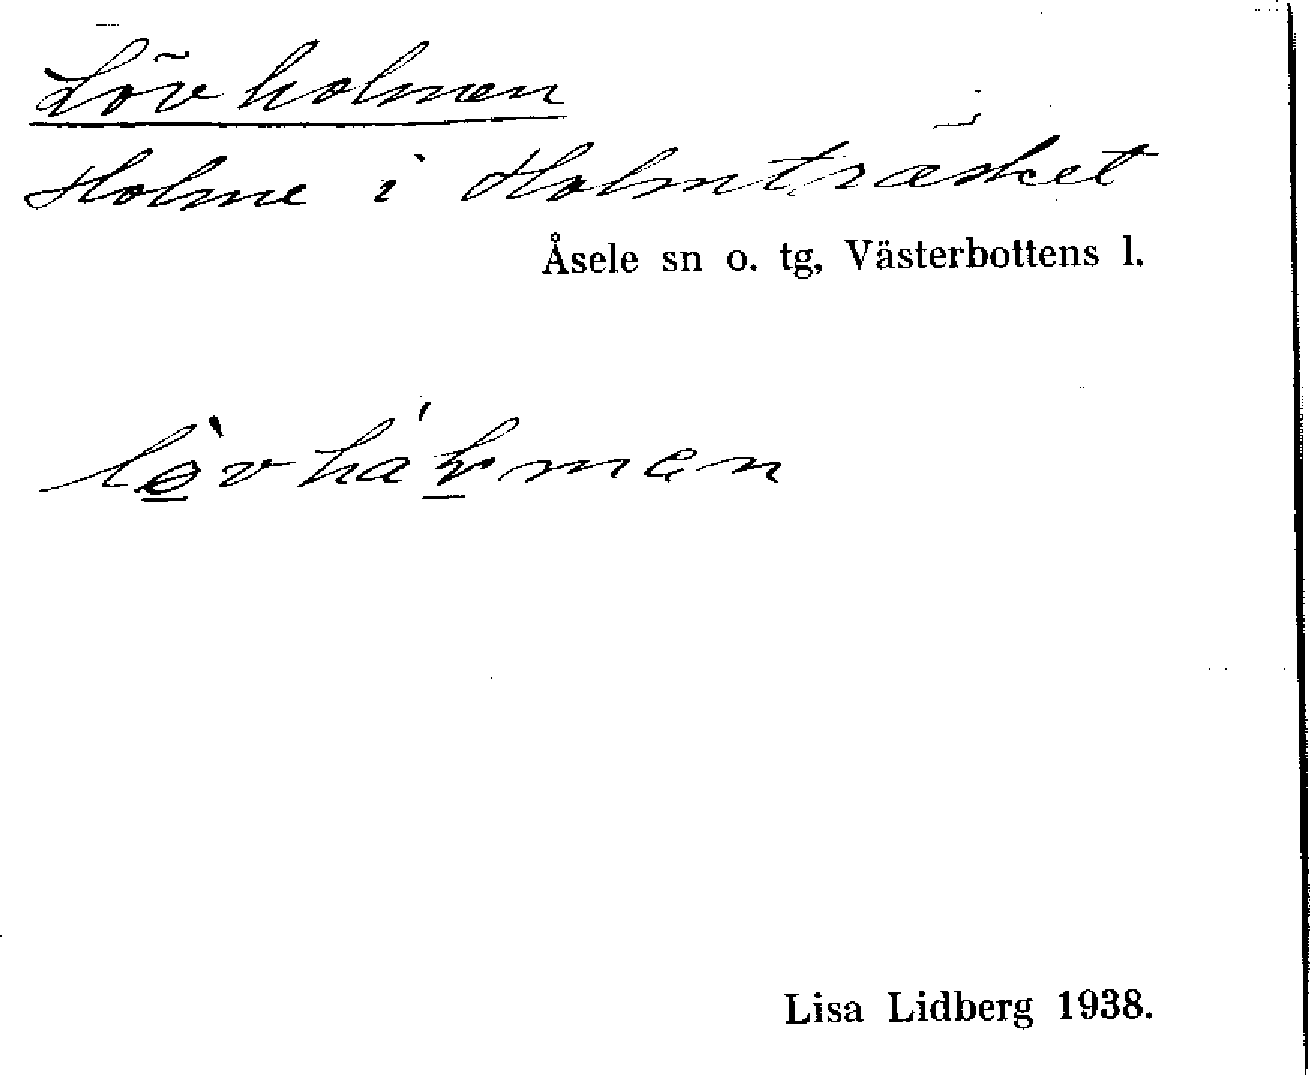 Lövholmen
Holme i Holmträsket
Åsele sn o. tg, Västerbottens l.
Lisa Lidberg 1938.